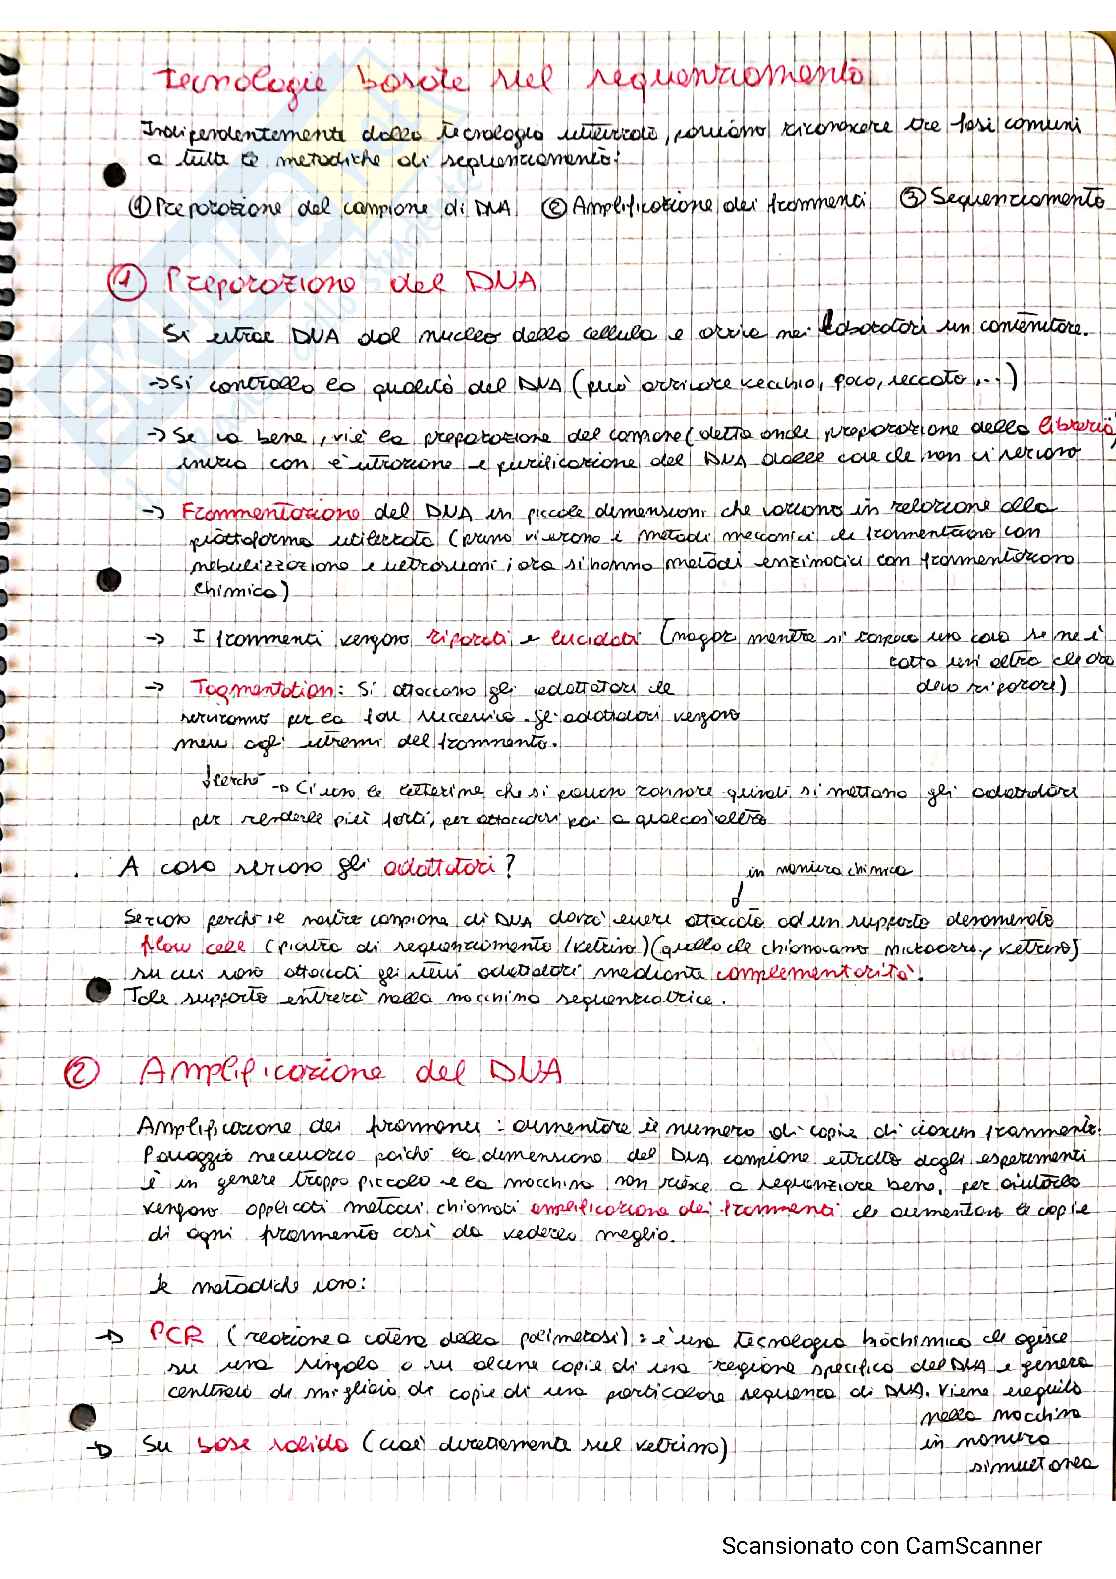 Tecnologie basate sul sequenziamento
Indipendentemente dalla tecnologia utilizzata, possiamo riconoscere tre fasi comuni
a tutte le metodiche di sequenziamento:
① Preparazione del campione di DNA ② Amplificazione dei frammenti ③ Sequenziamento
① Preparazione del DNA
Si estrae DNA dal nucleo della cellula e arriva nei laboratori un contenitore.
→ Si controlla la qualità del DNA (può arrivare vecchio, poco, seccato, ...)
→ Se va bene, vi è la preparazione del campione (detta anche preparazione della libreria)
inizia con l'estrazione e purificazione del DNA dalle cose che non ci servono
→ Frammentazione del DNA in piccole dimensioni che variano in relazione alla
piattaforma utilizzata (prima vi erano i metodi meccanici che frammentavano con
nebulizzazione e ultrasuoni; ora si hanno metodi enzimatici con frammentazione
chimica)
→ I frammenti vengono riparati e lucidati (magari mentre si rompeva una cosa se ne è
rotta un'altra che ora
devo riparare)
→ Tagmentation: Si attaccano gli adattatori che
serviranno per la fase successiva. Gli adattatori vengono
messi agli estremi del frammento.
Perché → Ci sono le letterine che si possono rovinare quindi si mettono gli adattatori
per renderle più forti, per attaccarsi poi a qualcos'altro
A cosa servono gli adattatori?
in maniera chimica
Servono perché il nostro campione di DNA dovrà essere attaccato ad un supporto denominato
flow cell (piastra di sequenziamento / vetrino) (quello che chiamavamo microarray, vetrino)
su cui sono attaccati gli stessi adattatori mediante complementarità.
Tale supporto entrerà nella macchina sequenziatrice.
② Amplificazione del DNA
Amplificazione dei frammenti: aumentare il numero di copie di ciascun frammento.
Passaggio necessario poiché la dimensione del DNA campione estratto dagli esperimenti
è in genere troppo piccola e la macchina non riesce a sequenziare bene, per aiutarla
vengono applicati metodi chiamati amplificazione dei frammenti che aumentano le copie
di ogni frammento così da vederlo meglio.
Le metodiche sono:
→ PCR (reazione a catena della polimerasi): è una tecnologia biochimica che agisce
su una singola o su alcune copie di una regione specifica del DNA e genera
centinaia di migliaia di copie di una particolare sequenza di DNA. Viene eseguita
nella macchina
in maniera
simultanea
→ Su base solida (cioè direttamente sul vetrino)
Scansionato con CamScanner